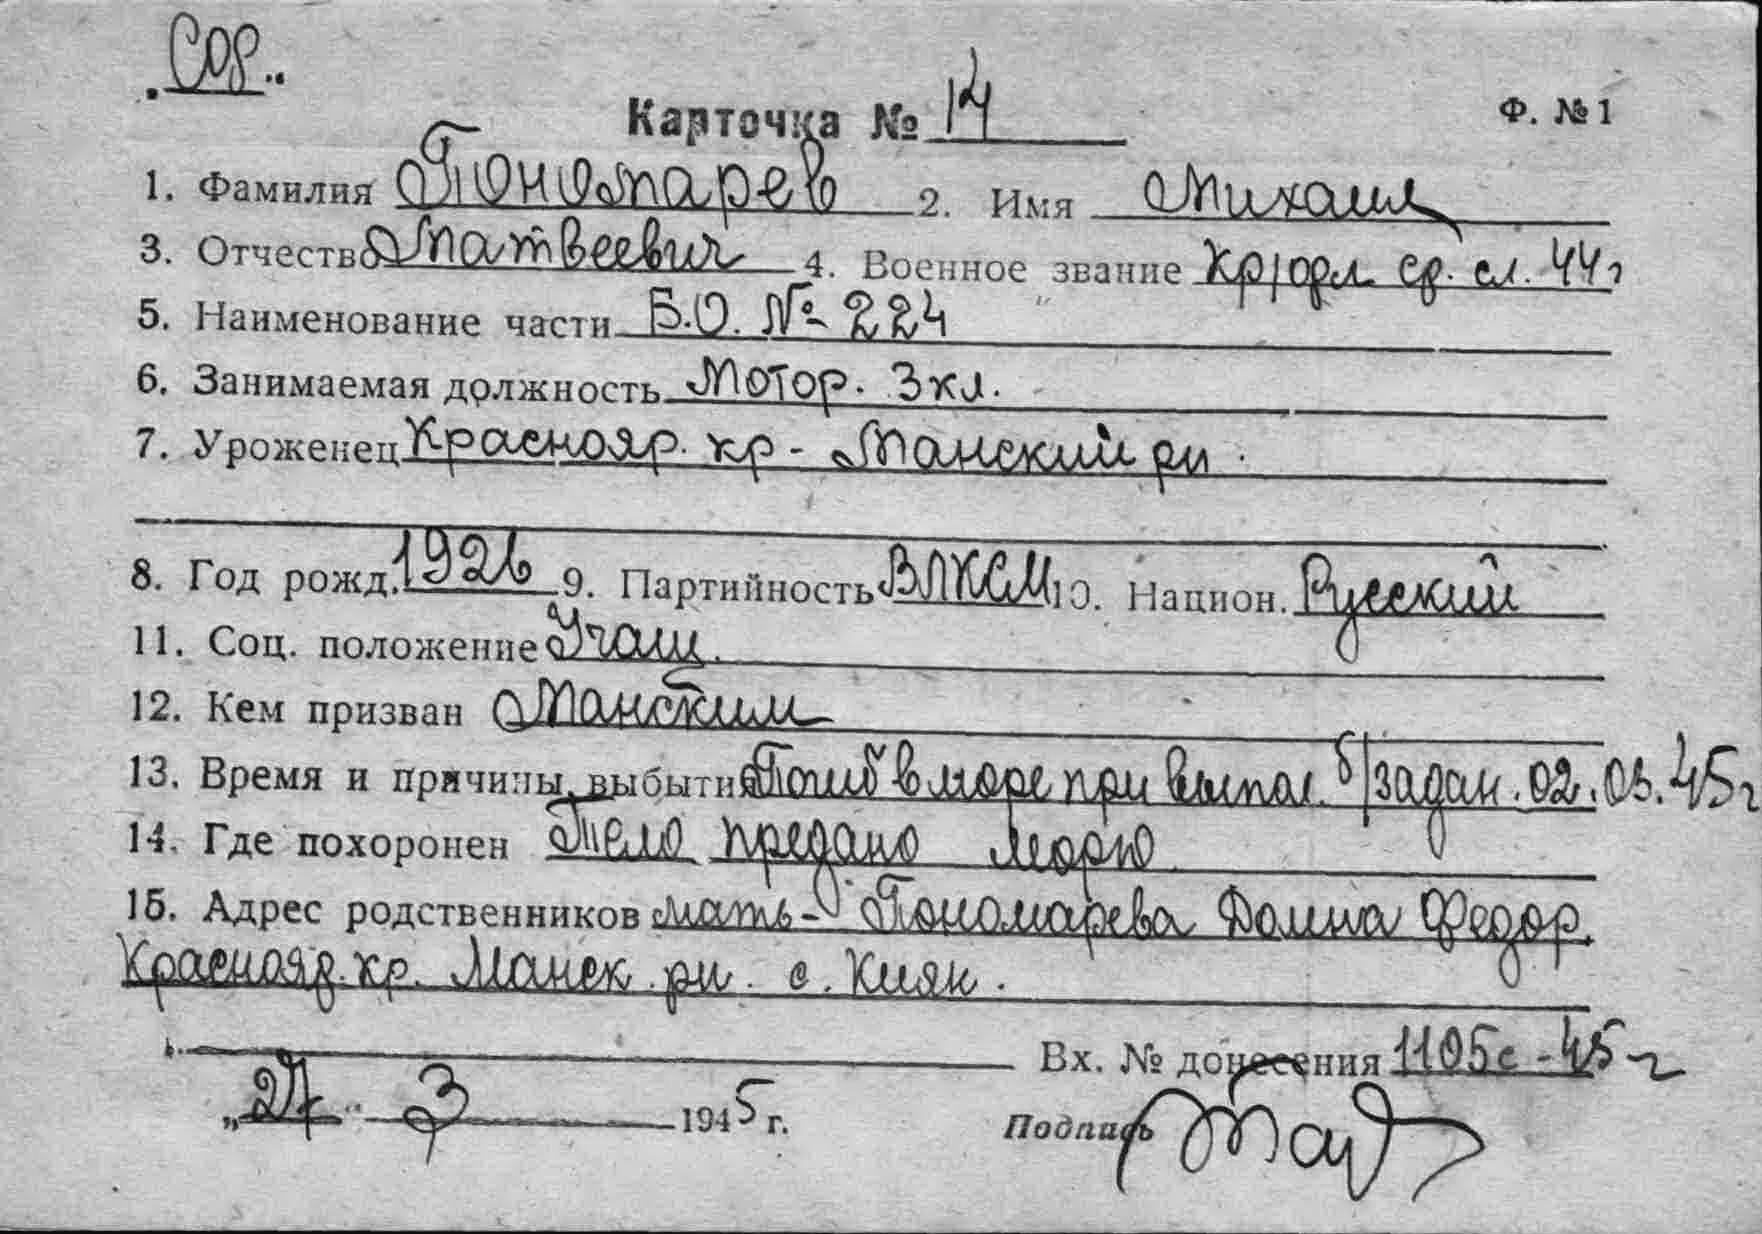 Сов.
Карточка № 14 Ф. № 1
1. Фамилия Пономарев 2. Имя Михаил
3. Отчество Матвеевич 4. Военное звание Кр/фл ср. сл. 44 г
5. Наименование части Б.О. № 224
6. Занимаемая должность Мотор. 3 кл.
7. Уроженец Краснояр. кр - Манский рн.
8. Год рожд. 1926 9. Партийность ВЛКСМ 10. Национ. Русский
11. Соц. положение Учащ.
12. Кем призван Манским
13. Время и причины выбытия Погиб в море при выпол. б/задан. 02.03.45 г
14. Где похоронен Тело предано морю
15. Адрес родственников мать - Пономарева Домна Федор.
Краснояр. кр. Манск. рн. с. Кияй.
Вх. № донесения 1105с - 45 г
„27“ 3 1945 г. Подпись